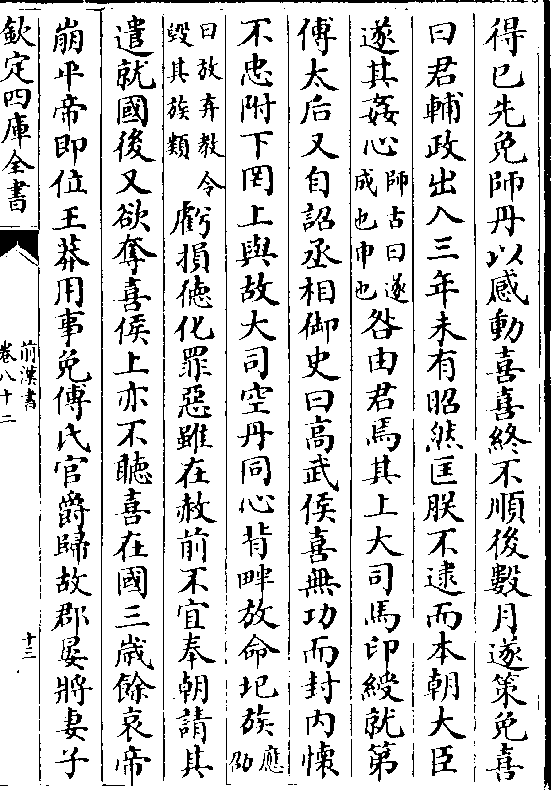 得已先免師丹以感動喜喜終不順後數月遂策免喜
曰君輔政出入三年未有昭然匡朕不逮而本朝大臣
遂其姦心師古曰遂成也申也咎由君焉其上大司馬印綬就第
傅太后又自詔丞相御史曰高武侯喜無功而封内懐
不忠附下罔上與故大司空丹同心背畔放命圯族應劭
曰放弃教令毁其族類虧損徳化罪惡雖在赦前不宜奉朝請其
遣就國後又欲奪喜侯上亦不聽喜在國三歳餘哀帝
崩平帝即位王莽用事免傅氏官爵歸故郡晏將妻子
欽定四庫全書
前漢書
卷八十二
十三